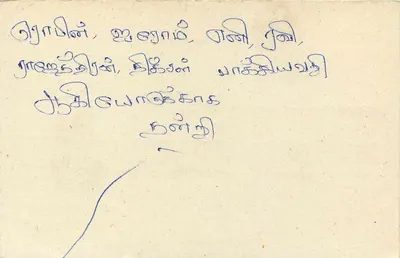 ரொமின், ஐரோம், எனி, ரனி,
ராஜேந்திரன், திக்சன் பாக்கியவதி
ஆகியோருக்காக
நன்றி